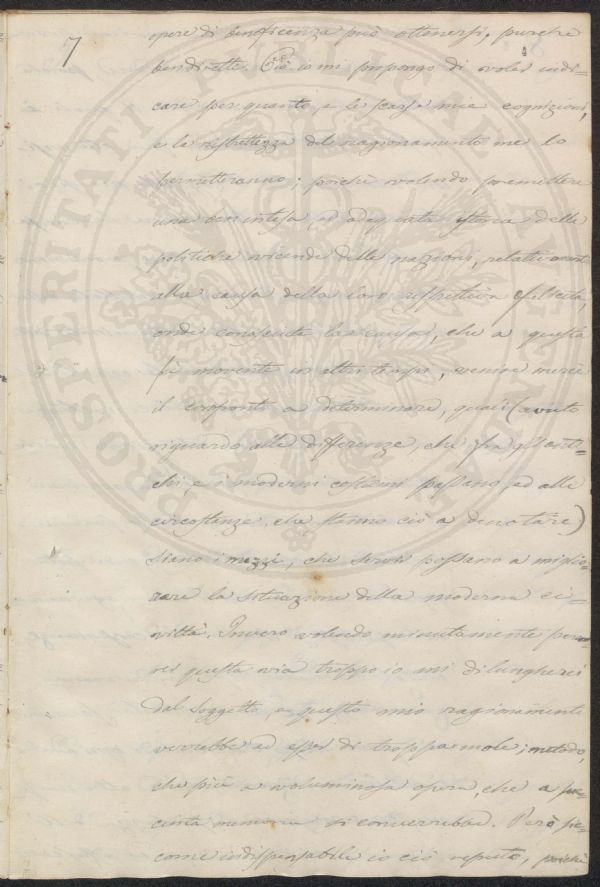 7
opere di beneficenza può ottenersi, purchè
ben dirette. Ciò io mi propongo di voler indi-
care per quanto, e le scarse mie cognizioni,
e le ristrettezza del ragionamento me lo
permetteranno; poichè volendo premettere
una ben intesa, ed adeguata istoria delle
politiche vicende delle nazioni, relativam.
alla causa della loro rispettiva felicità,
onde conosciute le cause, che a questa
fù movente in altri tempi, venire mercè
il confronto a determinare, quali (avuto
riguardo alle differenze, che fra gli anti-
chi, e i moderni costumi passano, ed alle
circostanze, che stanno ciò a denotare)
siano i mezzi, che servir possano a miglio-
rare la situazione della moderna ci-
viltà. Invero volendo minutamente
questa via troppo io mi dilungherei
dal soggetto, e questo mio ragionamento
verrebbe ad esser di troppa mole; metodo,
che più a voluminosa opera, che a suc-
cinta memoria si converrebbe. Però sic-
come indispensabile io ciò reputo, poichè
PROSPERITATI PUBLICAE AUGENDAE